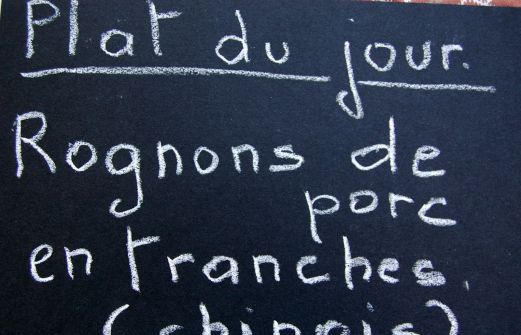 Plat du jour.
Rognons de
porc
en tranches.
(chinois)